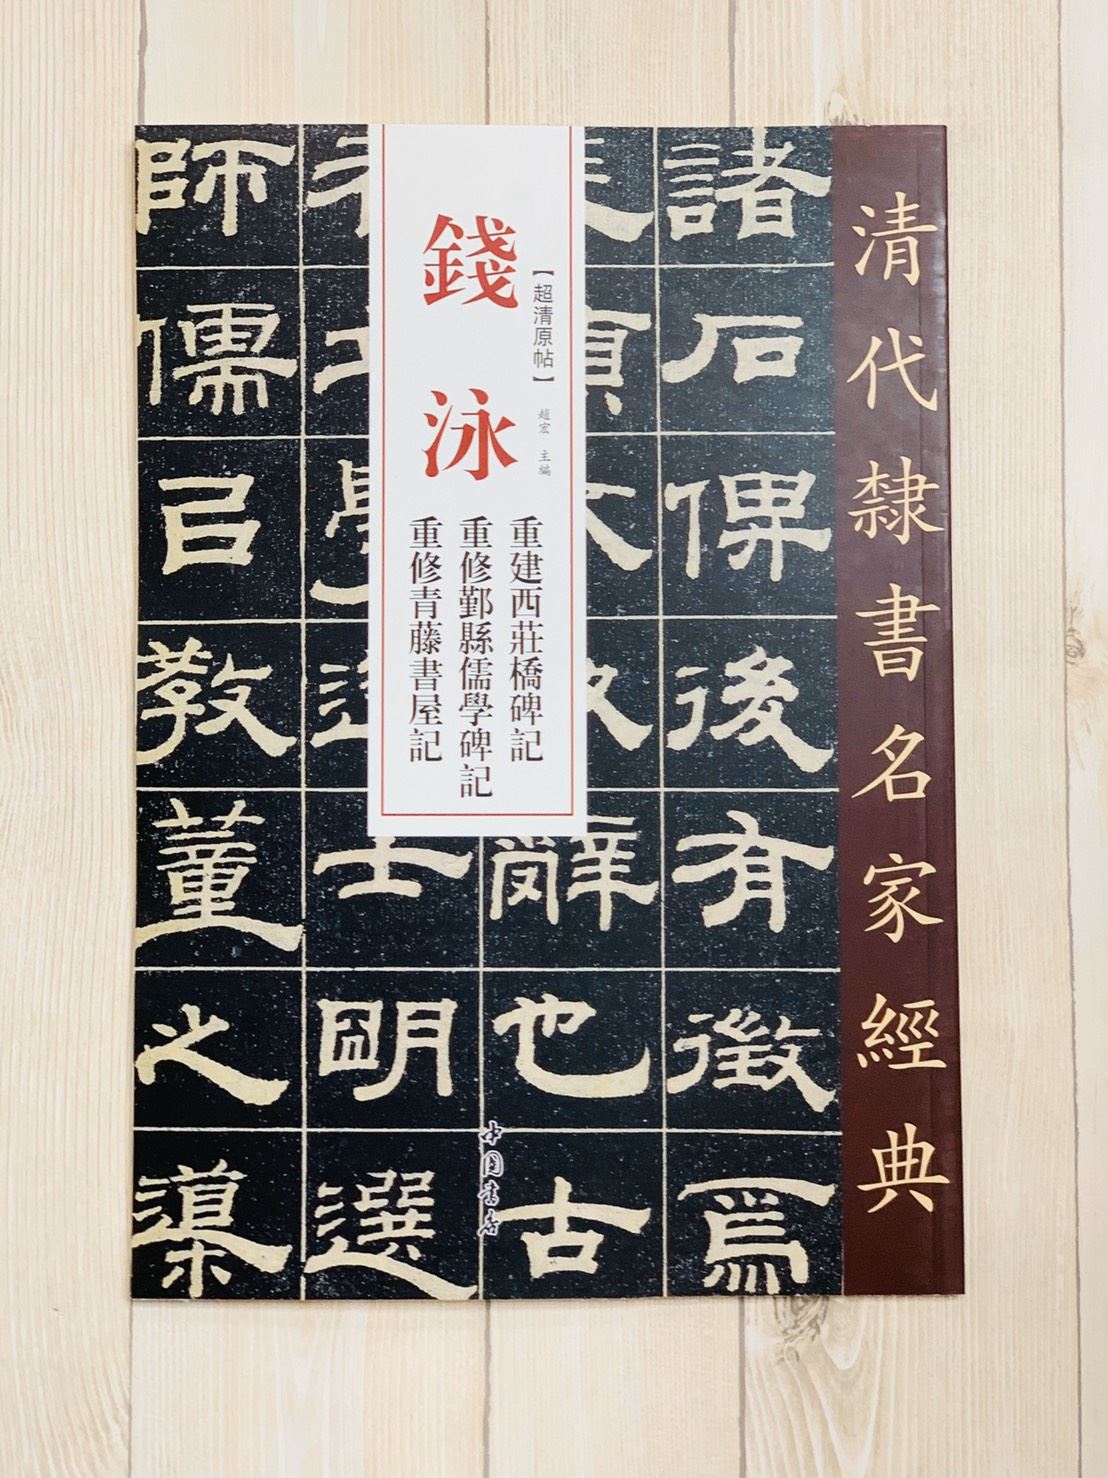 清代隸書名家經典
【超清原帖】
趙宏 主編
錢泳
重建西莊橋碑記
重修鄞縣儒學碑記
重修青藤書屋記
諸石俾後有徵爲
辭也古
士明選
師儒司教董之
中國書店